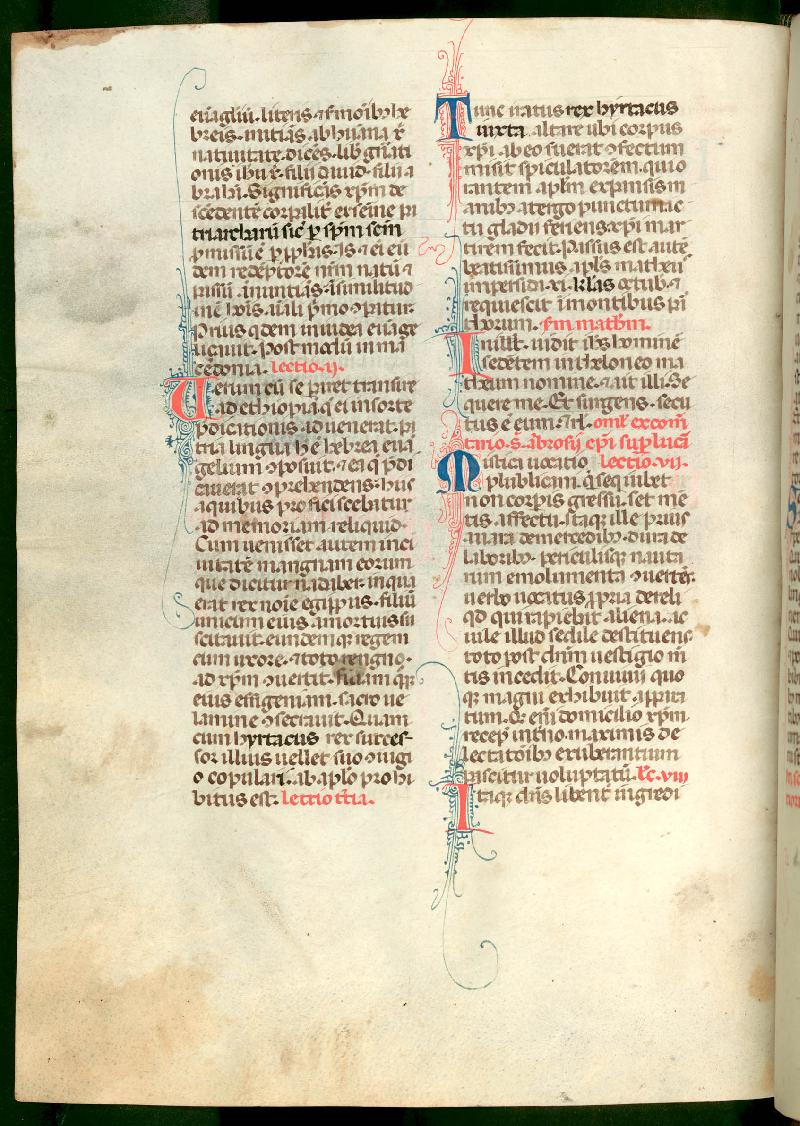 euāgliū. litteris ⁊ ẜmōibꝫ he
breis. initiās ab hūana xp̄i
natiuitate. dicēs. lib̾ gn̄ati
onis ihū xp̄i filii dauid. filii a
brahā. Significās xp̄m de
scēdentē corpalit̾ ex semīe pa
triarcharū sic̄ ꝑ sp̄m scm̄
ꝓmissū ē ꝑ ꝓphīs. Is ⁊ ei eū
dem redēptorē nr̄m natū ⁊
passū. ānuntiās ī similitud
inē hoīs. aīali pͥmo ꝯpatur.
Prius qͥdem in iudea euāge
liçauit. Post modū in ma
cedonia. lectio .ij.
Uerum cū se ꝑaret transire
ad ethiopiā. q̄ ei in sorte
p̄dicationis aduenerat. pa
tria lingua .h. ē hebrea euā
gelium ꝯposuit. ⁊ ea q̄ p̄di
cauerat ꝯprehendens. hiis
a quibus proficiscebatur
ad memoriam reliquid.
Cum uenisset autem in ci
uitatē mangnam eorum
que dicitur nadaber. in qua
erat rex noīe egippus. filiū
unicum eius. a mortuis su
scitauit. eundemqꝫ regem
cum uxore. ⁊ toto rengno.
ad xp̄m ꝯuertit. filiam qͦqꝫ
eius effigeniam. sacro ue
lamine ꝯsecrauit. Quam
cum hyrtacus rex succes
sor illius uellet suo ꝯiugi
o copulari. ab apl̄o prohi
bitus est. Lectio t̄tia.
Tunc iratus rex hyrtacus
iuxta altare ubi corpus
xp̄i ab eo fuerat ꝯfectum
misit spiculatorem. qui o
rantem apl̄m expansis m
anibꝫ a tergo punctum ic
tu gladii feriens. xp̄i mar
tirem fecit. Passus est autē
beatissimus apl̄s matheus
in persida .xi. kl̄as octub. ⁊
requiescit ī montibus pa
thorum. ẜm matħm.
In illo t̄. uidit ih̄s hominē
sedētem in theloneo ma
theum nomine. ⁊ ait illi. Se
quere me. Et surgens. secu
tus ē eum. ⁊ rl̄. omł̄ ex com̄
tario .s. ābrosij ep̄i sup lucā
Mistica uocatio lectio .vii.
publicani. q̄ seq̇ iubet
non corpis gressu. set me
tis affectu. Itaqꝫ ille prius
auara de mercedibꝫ. dura de
laboribꝫ. periculisqꝫ nauta
rum emolumenta ꝯuertēs.
uerbo uocatus ꝓpria dereli
q̄d qui rapiebat aliena. ac
uile illud sedile destituens
toto post dn̄m uestigio m̄
tis incedit. Conuiuii quo
qꝫ magni exhibuit appara
tum. Q̄ eī domicilio xp̄m
recepꝫ int̾no. maximis de
lectatōibꝫ exuberantium
pascitur uoluptatū. Lc̄. viii
Itaqꝫ dn̄s libent̾ ingredi